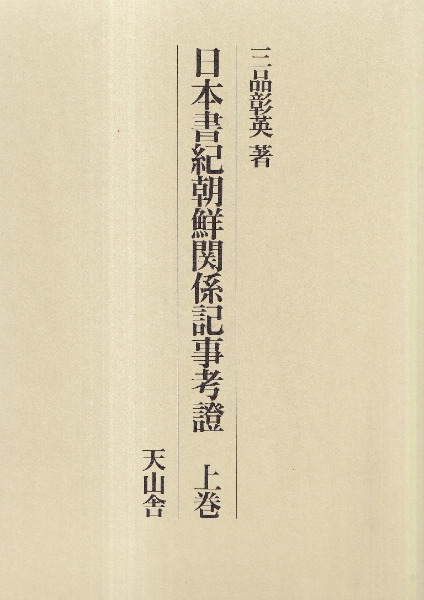 三品彰英 著
日本書紀朝鮮関係記事考證 上巻
天山舎